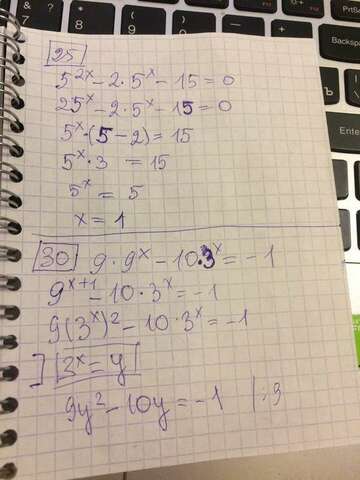 25
5^{2x} - 2 · 5^x - 15 = 0
25^x - 2 · 5^x - 15 = 0
5^x · (5 - 2) = 15
5^x · 3 = 15
5^x = 5
x = 1
30 9 · 9^x - 10 · 3^x = -1
9^{x+1} - 10 · 3^x = -1
9(3^x)^2 - 10 · 3^x = -1
] 3^x = y
9y^2 - 10y = -1 | : 9